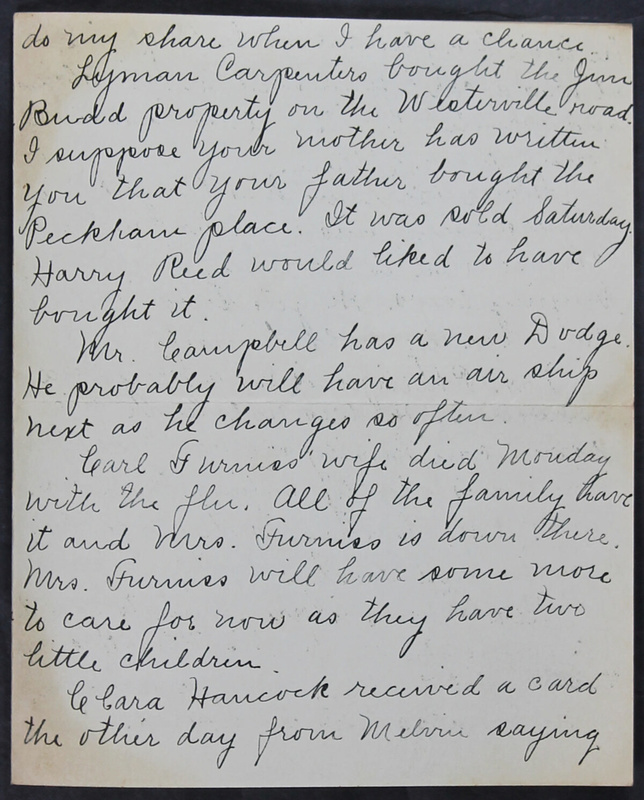 do my share when I have a chance.
Lyman Carpenters bought the Jim
Budd property on the Westerville road.
I suppose your mother has written
you that your father bought the
Peckham place. It was sold Saturday.
Harry Reed would liked to have
bought it.
Mr. Campbell has a new Dodge.
He probably will have an air ship
next as he changes so often.
Carl Furniss' wife died Monday
with the flu. All of the family have
it and Mrs. Furniss is down there.
Mrs. Furniss will have some more
to care for now as they have two
little children.
Clara Hancock received a card
the other day from Melvin saying